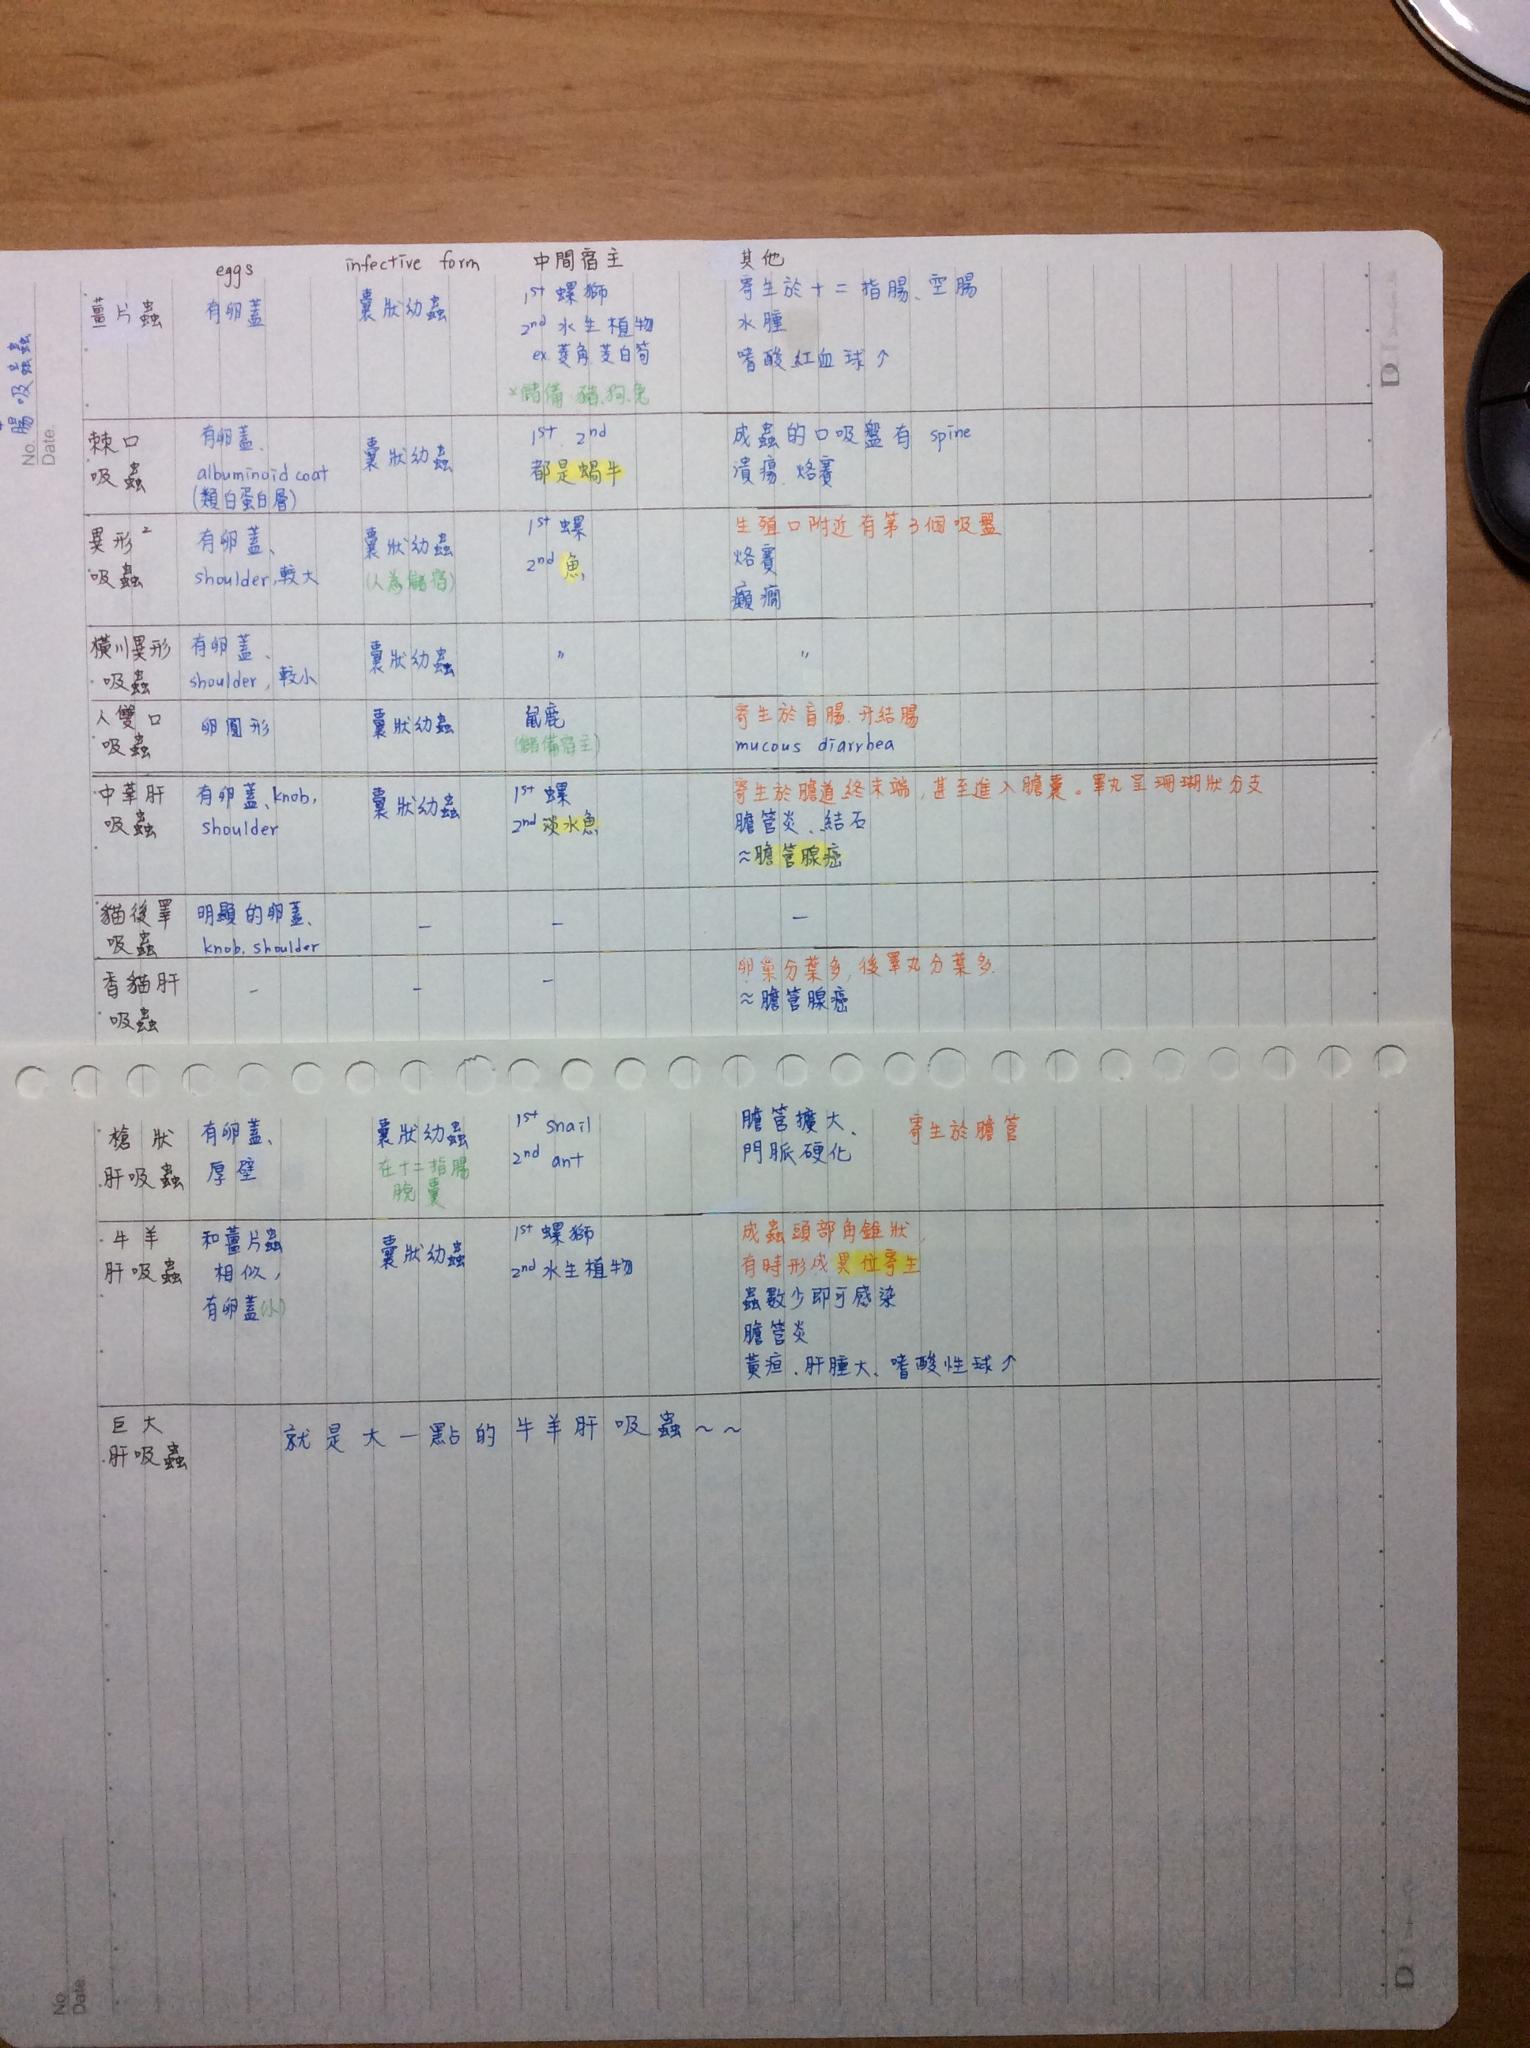 腸吸蟲
No.
Date.
eggs infective form 中間宿主 其他
薑片蟲
有卵蓋
囊狀幼蟲
1st 螺獅
2nd 水生植物
ex. 菱角.茭白筍
*儲備 豬.狗.兔
寄生於十二指腸、空腸
水腫
嗜酸紅血球↑
棘口
吸蟲
有卵蓋、
albuminoid coat
(類白蛋白層)
囊狀幼蟲
1st. 2nd
都是蝸牛
成蟲的口吸盤有 spine
潰瘍. 烙賽
異形2
吸蟲
有卵蓋、
shoulder,較大
囊狀幼蟲
(人為儲宿)
1st 螺
2nd 魚
生殖口附近有第3個吸盤
烙賽
癲癇
橫川異形
吸蟲
有卵蓋、
shoulder, 較小
囊狀幼蟲
〃
〃
人雙口
吸蟲
卵圓形
囊狀幼蟲
鼠鹿
(儲備宿主)
寄生於盲腸.升結腸
mucous diarrhea
中華肝
吸蟲
有卵蓋、knob,
shoulder
囊狀幼蟲
1st 螺
2nd 淡水魚
寄生於膽道終末端,甚至進入膽囊。睪丸呈珊瑚狀分支
膽管炎、結石
≈膽管腺癌
貓後睪
吸蟲
明顯的卵蓋、
knob. shoulder
–
–
–
香貓肝
吸蟲
–
–
–
卵巢分葉多,後睪丸分葉多.
≈膽管腺癌
槍狀
肝吸蟲
有卵蓋、
厚壁
囊狀幼蟲
在十二指腸
脫囊
1st snail
2nd ant
膽管擴大、
門脈硬化
寄生於膽管
牛羊
肝吸蟲
和薑片蟲
相似,
有卵蓋(小)
囊狀幼蟲
1st 螺獅
2nd 水生植物
成蟲頭部角錐狀,
有時形成異位寄生
蟲數少即可感染
膽管炎
黃疸、肝腫大、嗜酸性球↑
巨大
肝吸蟲
就是大一點的牛羊肝吸蟲~~
No.
Date